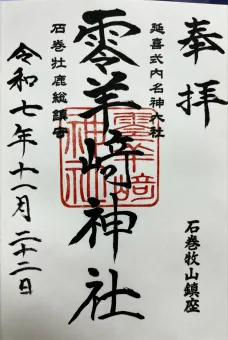 奉拝
石巻牧山鎮座
延喜式内名神大社
零羊崎神社
石巻牡鹿総鎮守
令和七年十一月二十二日
零羊﨑神社